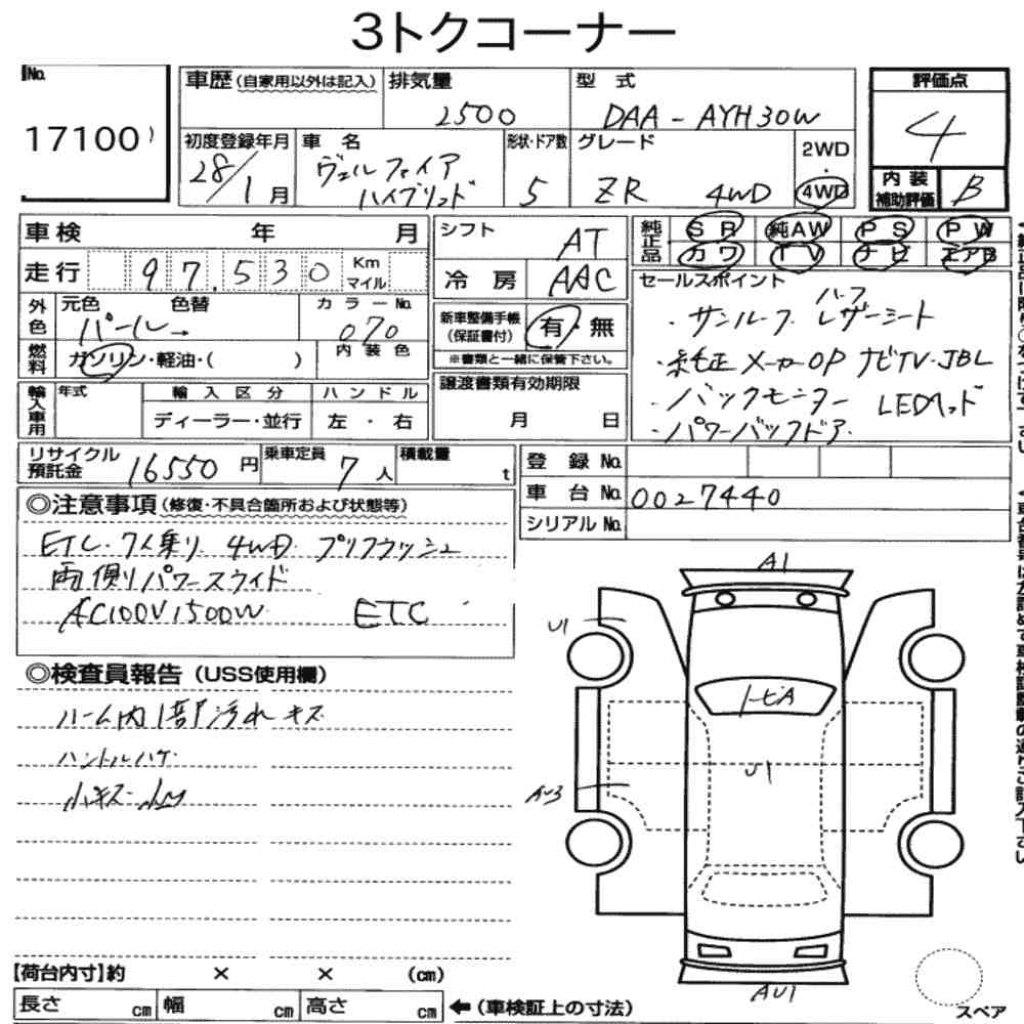 3トクコーナー
No. 17100
車歴(自家用以外は記入) 排気量 2500 型式 DAA-AYH30W 評価点 4
初度登録年月 28/1月 車名 ヴェルファイア ハイブリッド 形状・ドア数 5 グレード ZR 4WD 2WD 4WD
内装補助評価 B
車検 年 月 シフト AT 純正品 SR 純AW PS PW
走行 97,530 Km マイル 冷房 AAC カワ TV ナビ エアB
外色 元色 パール 色替 カラーNo. 070
新車整備手帳(保証書付) 有・無
※書類と一緒に保管下さい。
燃料 ガソリン・軽油・( ) 内装色
セールスポイント
・サンルーフ ハーフレザーシート
・純正メーカーOPナビTV・JBL
・バックモニター LEDヘッド
・パワーバックドア
輸入車用 年式 輸入区分 ハンドル 譲渡書類有効期限
ディーラー・並行 左・右 月 日
リサイクル預託金 16550円 乗車定員 7人 積載量 t
登録No.
車台No. 0027440
シリアルNo.
◎注意事項(修復・不具合箇所および状態等)
ETC・7人乗り 4WD プリクラッシュ
両側パワースライド
AC100V1500W ETC
◎検査員報告(USS使用欄)
ルーム内1部汚れ キズ
ハンドルハゲ
小キズ
A1
U1
トビA
U1
AU3
AU1
【荷台内寸】約 × × (cm)
長さ cm 幅 cm 高さ cm ←(車検証上の寸法)
スペア